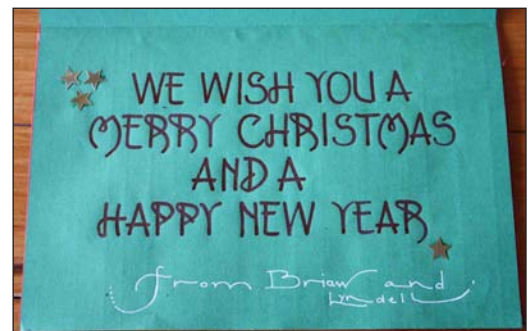 WE WISH YOU A
MERRY CHRISTMAS
AND A
HAPPY NEW YEAR
from Brian and
Lyndell